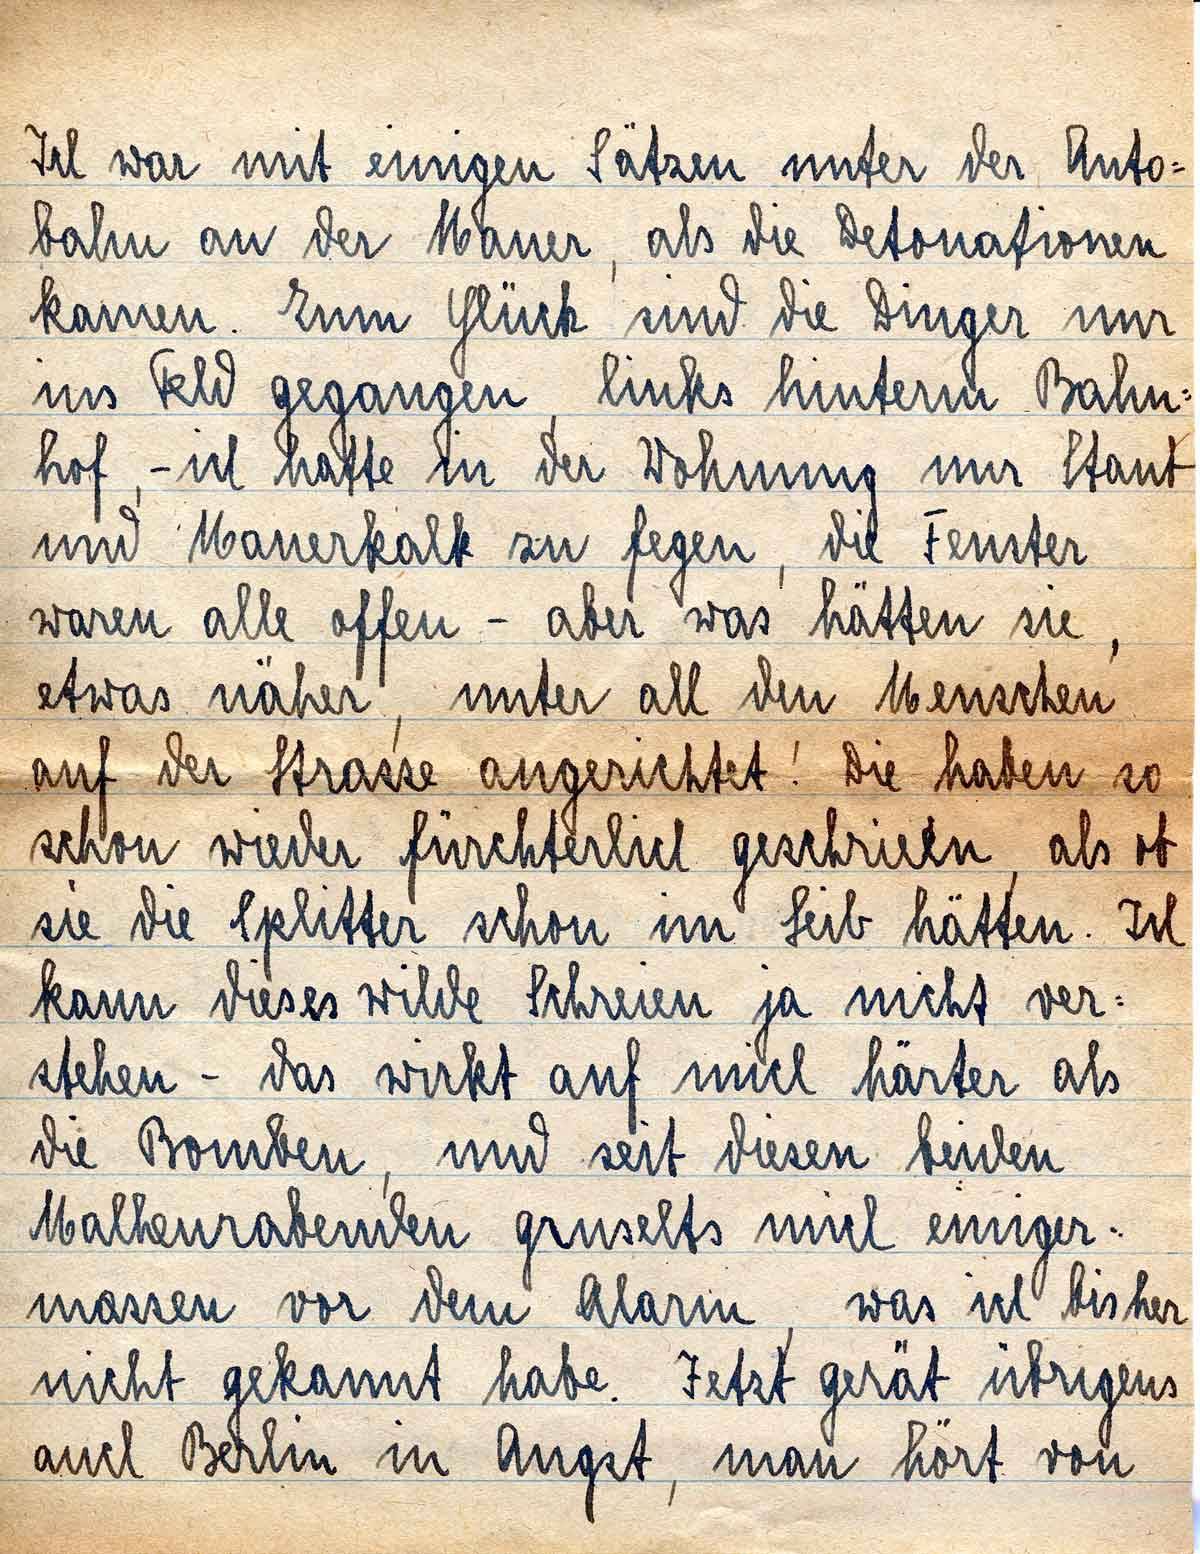 Ich war mit einigen Sätzen unter der Auto=
bahn an der Mauer, als die Detonationen
kamen. Zum Glück sind die Dinger nur
ins Feld gegangen, links hinterm Bahn=
hof, - ich hatte in der Wohnung nur Staub
und Mauerkalk zu fegen, die Fenster
waren alle offen - aber was hätten sie,
etwas näher, unter all den Menschen
auf der Strasse angerichtet! Die haben so
schon wieder fürchterlich geschrieen, als ob
sie die Splitter schon im Leib hätten. Ich
kann dieses wilde Schreien ja nicht ver=
stehen - das wirkt auf mich härter als
die Bomben, und seit diesen beiden
Malheurabenden gruselts mich einiger=
massen vor dem Alarm, was ich bisher
nicht gekannt habe. Jetzt gerät übrigens
auch Berlin in Angst, man hört von